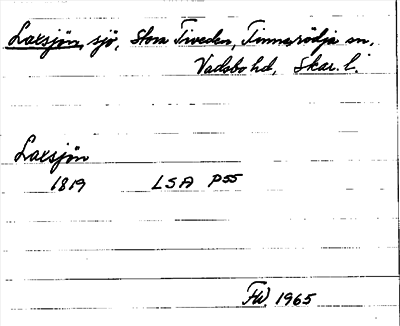 Laxsjön, sjö, Stora Tiveden, Finnerödja sn,
Vadsbo hd, Skar. l.
Laxsjön
1819 LSA P55
FW 1965